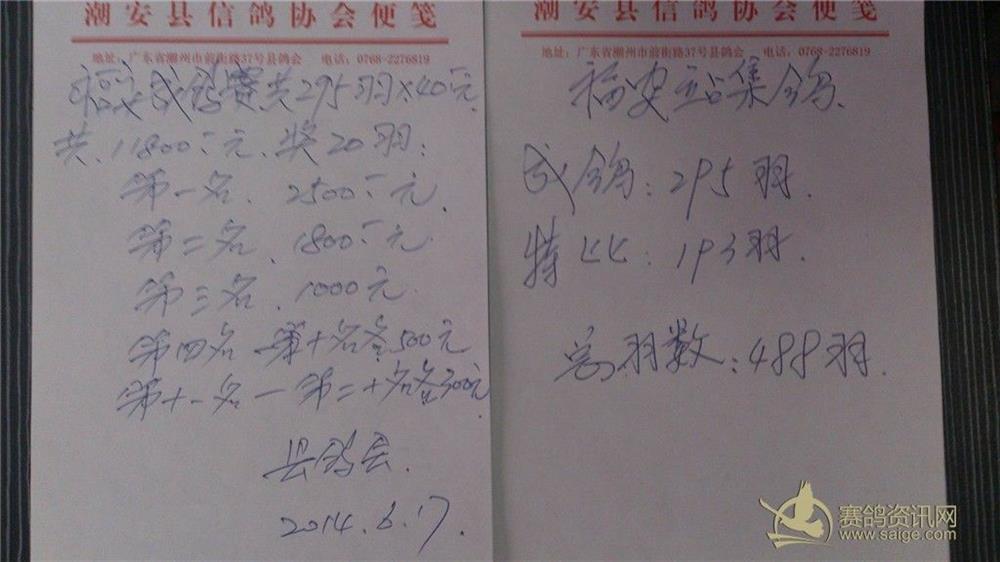 潮安县信鸽协会便笺
地址：广东省潮州市前街路37号县鸽会 电话：0768-2276819
福安成鸽赛共295羽×40元
共、11800元、奖20羽：
第一名、2500元、
第二名、1800元
第三名、1000元
第四名—第十名各500元
第十一名—第二十名各300元
县鸽会.
2014.6.17.
潮安县信鸽协会便笺
地址：广东省潮州市前街路37号县鸽会 电话：0768-2276819
福安站集鸽.
成鸽：295羽.
特比：193羽.
总羽数：488羽.
赛鸽资讯网
www.saige.com